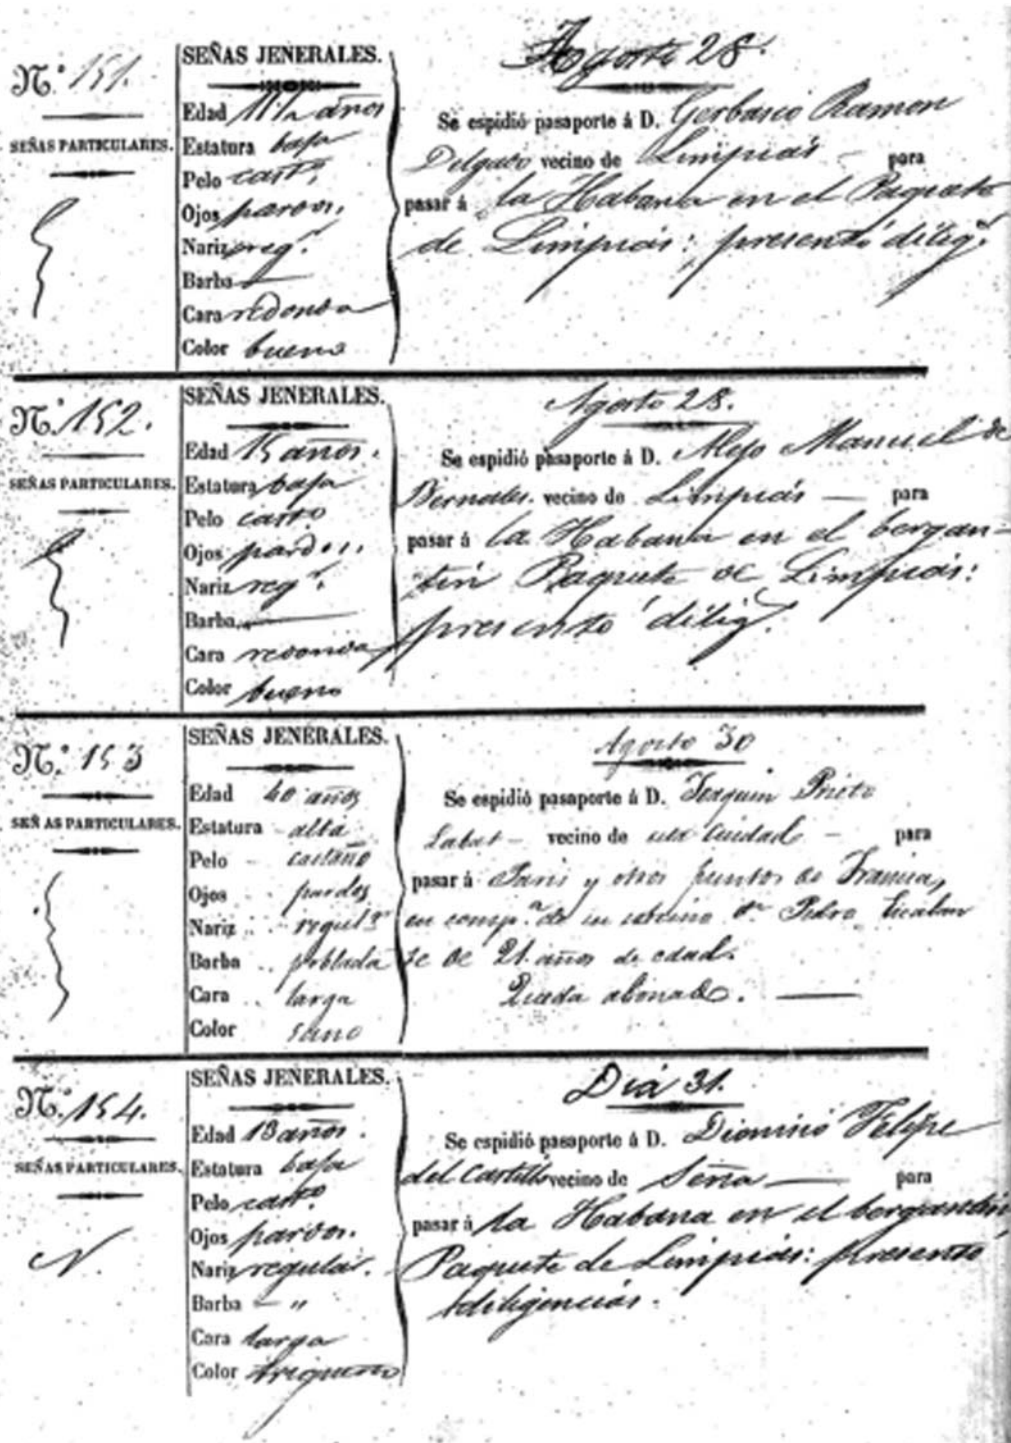 Nº 151.
SEÑAS PARTICULARES.
SEÑAS JENERALES.
Edad 11½ años
Estatura baja
Pelo cast.
Ojos pardos.
Nariz reg.r
Barba —
Cara redonda
Color bueno
Agosto 28.
Se espidió pasaporte á D. Gerbasio Ramon
Delgado vecino de Limpias — para
pasar á la Habana en el Paquete
de Limpias: presentó dilig.s
Nº 152.
SEÑAS PARTICULARES.
SEÑAS JENERALES.
Edad 15 años.
Estatura baja
Pelo casto
Ojos pardos.
Nariz reg.r
Barba —
Cara redonda
Color bueno
Agosto 28.
Se espidió pasaporte á D. Alejo Manuel de
Bernales. vecino de Limpias — para
pasar á la Habana en el bergan-
tin Paquete de Limpias:
presentó dilig.
Nº 153
SEÑAS PARTICULARES.
SEÑAS JENERALES.
Edad 40 años
Estatura alta
Pelo castaño
Ojos pardos
Nariz regul.r
Barba poblada
Cara larga
Color sano
Agosto 30
Se espidió pasaporte á D. Joaquin Prieto
Labat — vecino de esta Ciudad — para
pasar á Paris y otros puntos de Francia,
en comp.a de su sobrino Dn Pedro
de 21 años de edad.
Queda abonado. —
Nº 154.
SEÑAS PARTICULARES.
N.
SEÑAS JENERALES.
Edad 13 años.
Estatura baja
Pelo casto.
Ojos pardos.
Nariz regular.
Barba — "
Cara larga
Color trigueño
Dia 31.
Se espidió pasaporte á D. Dionisio Felipe
del Castillo vecino de Seña — para
pasar á la Habana en el bergantin
Paquete de Limpias: presentó
diligencias.